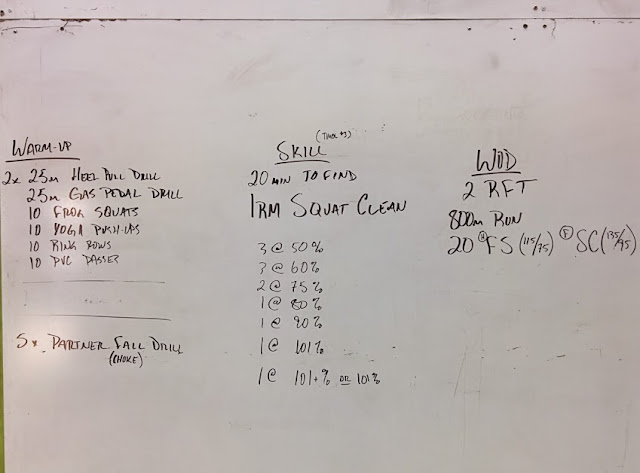 WARM-UP
2x 25m HEEL PULL DRILL
25m GAS PEDAL DRILL
10 FROG SQUATS
10 YOGA PUSH-UPS
10 RING ROWS
10 PVC PASSES
5x PARTNER FALL DRILL
(CHOKE)
SKILL
20 MIN TO FIND
1RM SQUAT CLEAN
3 @ 50%
3 @ 60%
2 @ 75%
1 @ 80%
1 @ 90%
1 @ 101%
1 @ 101+% OR 101%
WOD
2 RFT
800m RUN
20 FS (115/75) SC (135/95)